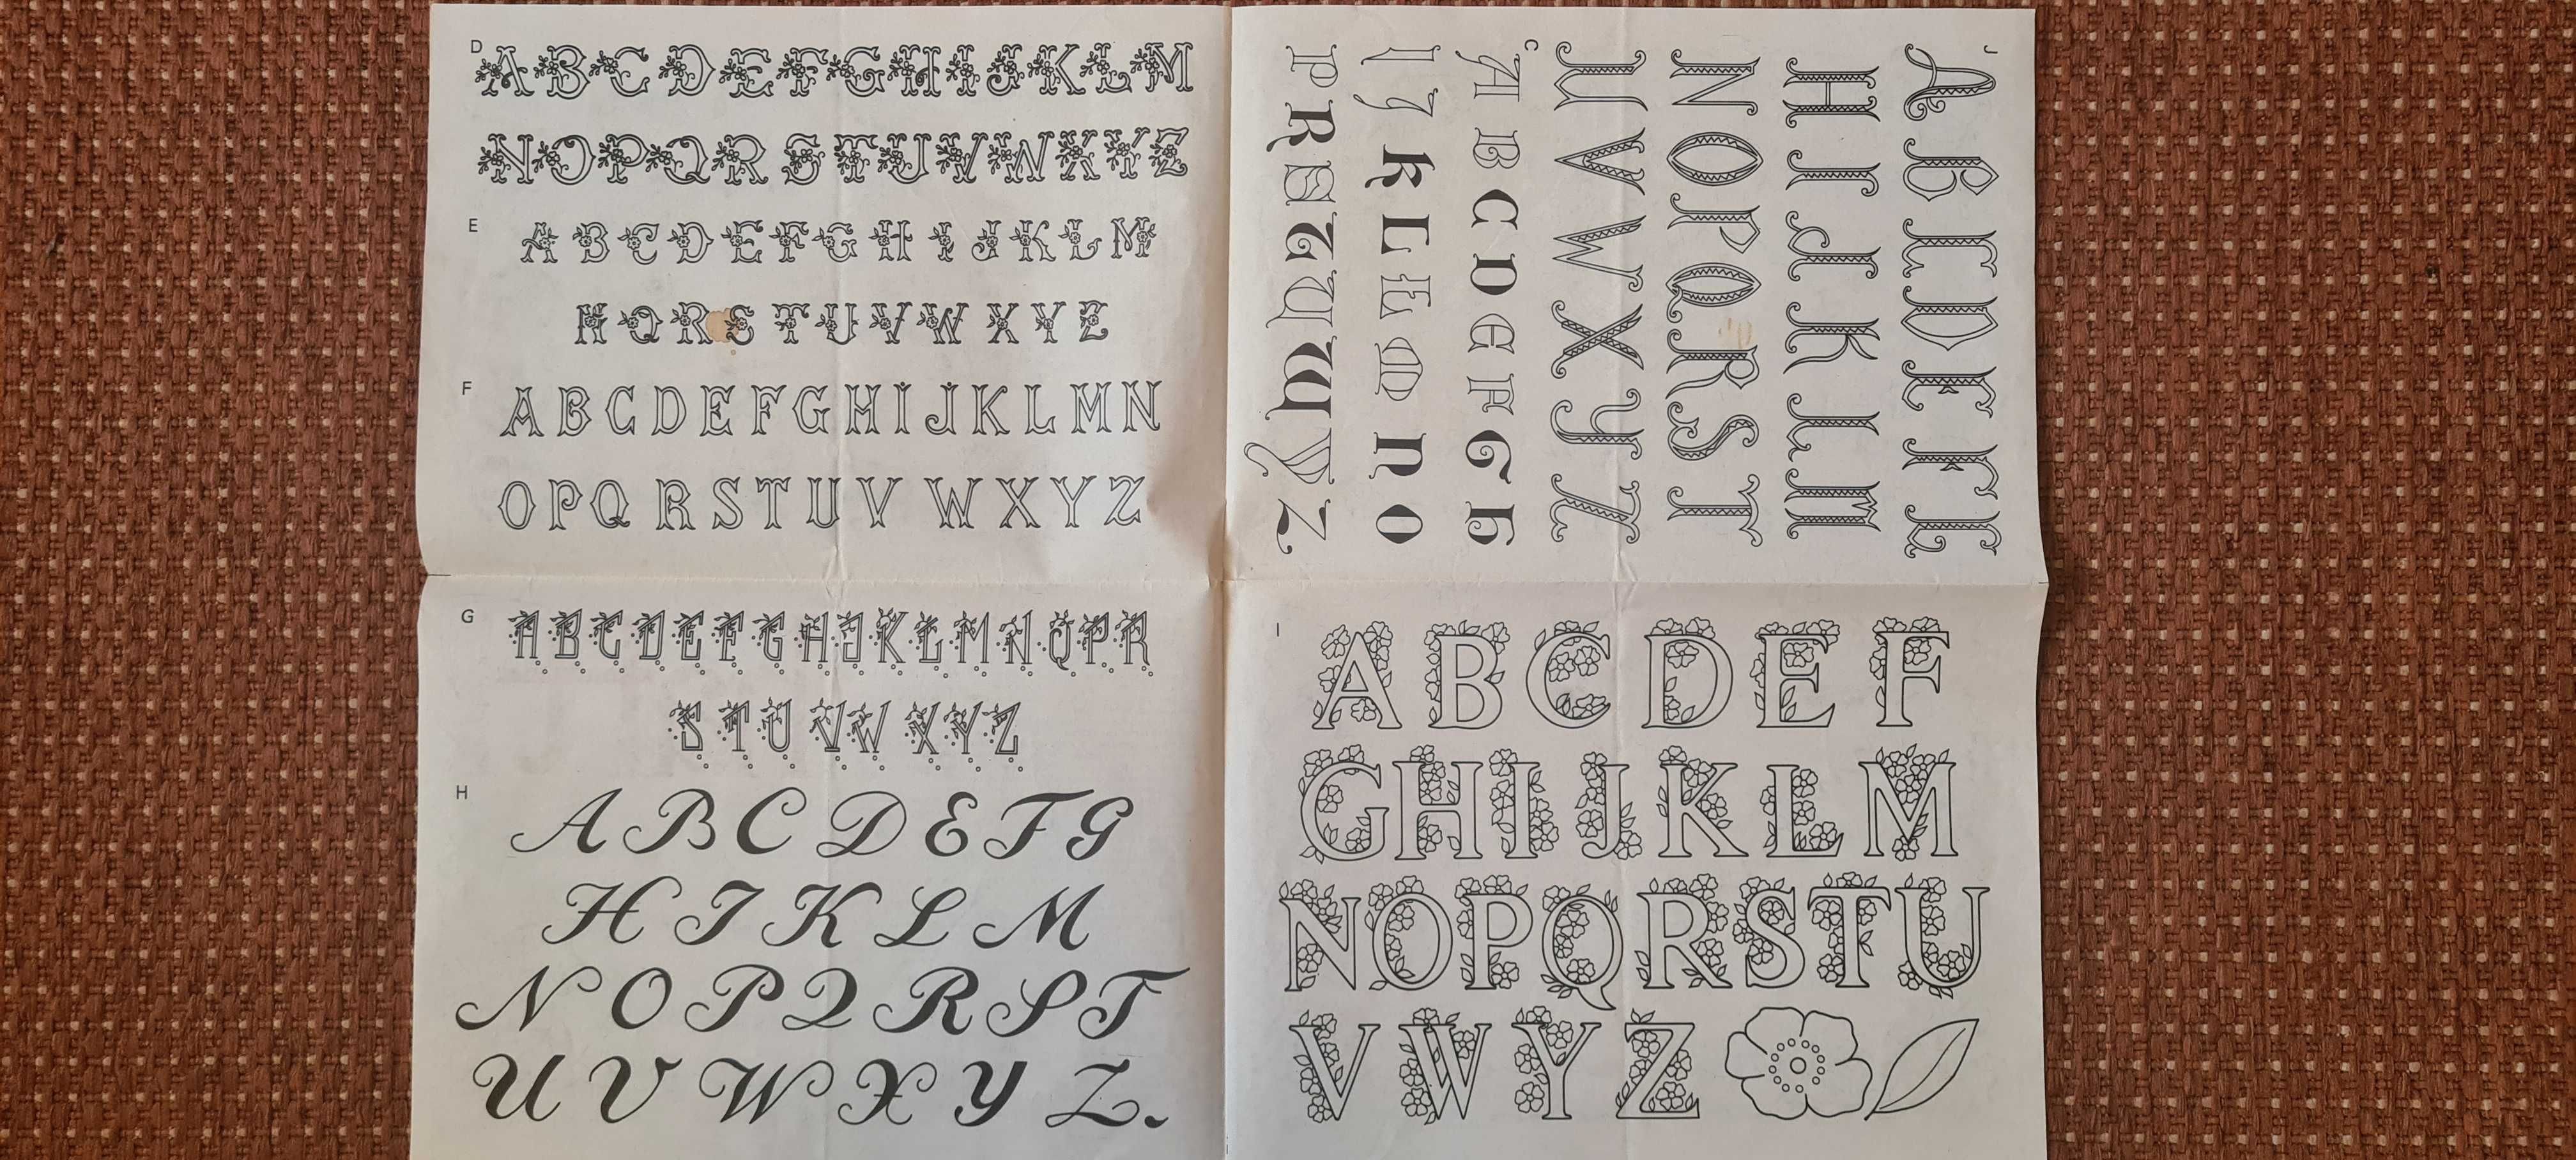 D
A B C D E F G H I J K L M
N O P Q R S T U V W X Y Z
E
A B C D E F G H I J K L M
N Q R S T U V W X Y Z
F
A B C D E F G H I J K L M N
O P Q R S T U V W X Y Z
G
A B C D E F G H J K L M N O P R
S T U V W X Y Z
H
A B C D E F G
H I K L M
N O P Q R S T
U V W X Y Z.
J
A B C D E F G
H I J K L M
N O P Q R S T
U V W X Y Z
C
A B C D E F G H
I J K L Ł M N O
P R S T U W Y Z
I
A B C D E F
G H I J K L M
N O P Q R S T U
V W Y Z